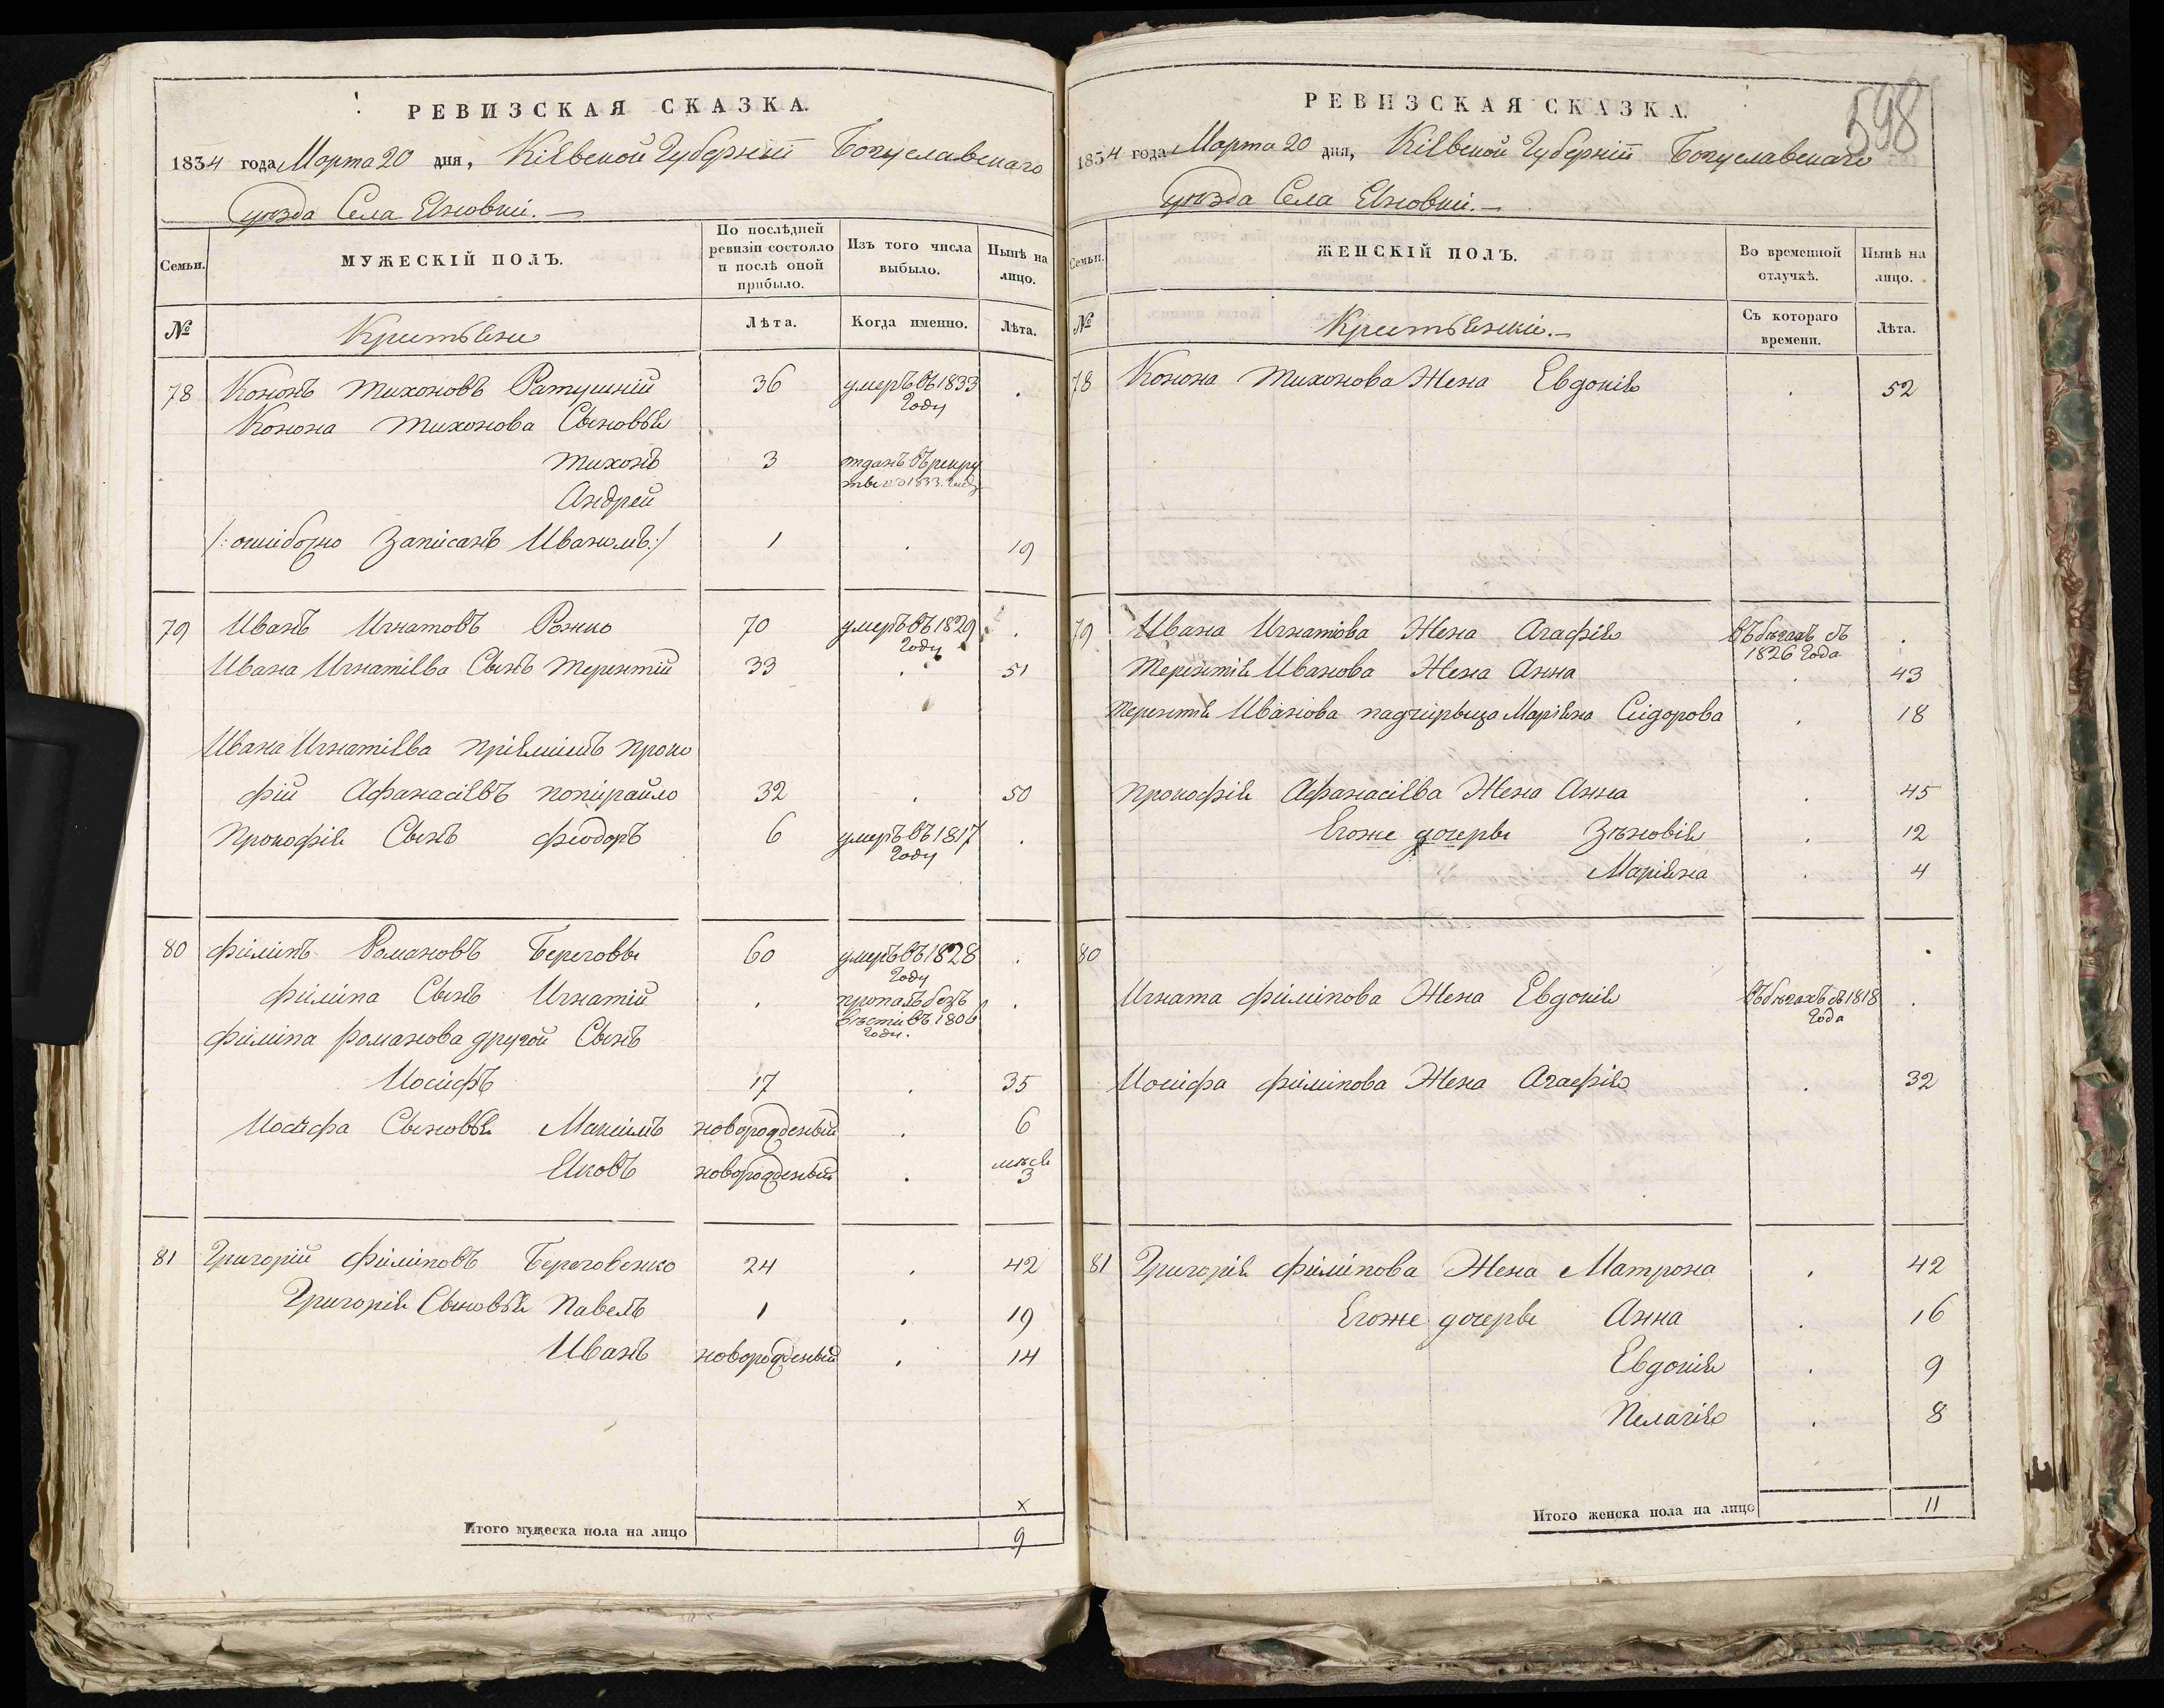 РЕВИЗСКАЯ СКАЗКА.
1834 года Марта 20 дня, Кіевской Губерніи Богуславскаго
уѣзда Села Яновки.—
Семьи.
МУЖЕСКІЙ ПОЛЪ.
По послѣдней ревизіи состояло и послѣ оной прибыло.
Изъ того числа выбыло.
Нынѣ на лицо.
№ Крестьяне Лѣта. Когда именно. Лѣта.
78 Кононъ Тихоновъ Ратушній 36 умеръ въ 1833 .
Году
Конона Тихонова Сыновья
Тихонъ 3 отданъ въ рекру
ты въ 1833 Году
Андрей
/:ошибочно Записанъ Иваномъ:/ 1 . 19
79 Иванъ Игнатовъ Рожко 70 умеръ въ 1829 .
Году
Ивана Игнатіева Сынъ Терентій 33 . 51
Ивана Игнатіева пріемышъ Проко
фій Афанасіевъ 32 . 50
Прокофія Сынъ Феодоръ 6 умеръ въ 1817 .
Году
80 Филипъ Романовъ Береговы 60 умеръ въ 1828 .
Году
Филипа Сынъ Игнатій . пропалъ безъ .
вѣсти въ 1806
Году.
Филипа Романова другой Сынъ
Иосифъ 17 . 35
Иосифа Сыновья Максимъ новорожденый . 6
мѣся
Яковъ новорожденый . 3
81 Григорій Филиповъ Береговенко 24 . 42
Григорія Сыновья Павелъ 1 . 19
Иванъ новорожденый . 14
×
Итого мужеска пола на лицо 9
598
РЕВИЗСКАЯ СКАЗКА.
1834 года Марта 20 дня, Кіевской Губерніи Богуславскаго
уѣзда Села Яновки.—
Семьи.
ЖЕНСКІЙ ПОЛЪ.
Во временной отлучкѣ.
Нынѣ на лицо.
№ Крестьянки.— Съ котораго времени. Лѣта.
78 Конона Тихонова Жена Евдокія . 52
79 Ивана Игнатіова Жена Агафія въ бѣгахъ съ .
1826 Года
Терентія Иванова Жена Анна . 43
Терентія Иванова падчерыца Маріяна Сидорова . 18
Прокофія Афанасіева Жена Анна . 45
Егоже дочеры Зѣновія . 12
Маріяна . 4
80 .
Игната Филипова Жена Евдокія въ бѣгахъ съ 1818 .
Года
Иосифа Филипова Жена Агафія . 32
81 Григорія Филипова Жена Матрона . 42
Егоже дочеры Анна . 16
Евдокія . 9
Пелагія . 8
Итого женска пола на лицо 11